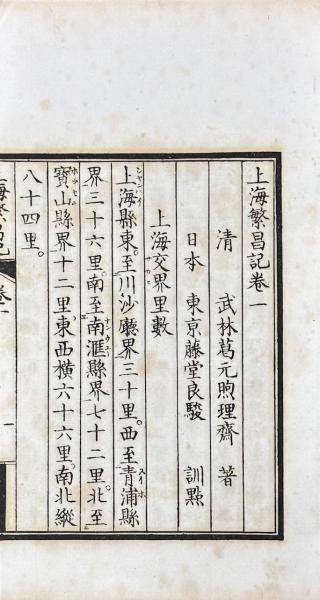 上海繁昌記卷一
清　武林葛元煦理齋　著
日本　東京藤堂良駿　訓點
上海交界里數
上海縣東至川沙廳界三十里。西至青浦縣
界三十六里。南至南滙縣界七十二里。北至
寶山縣界十二里。東西橫六十六里。南北縱
八十四里。